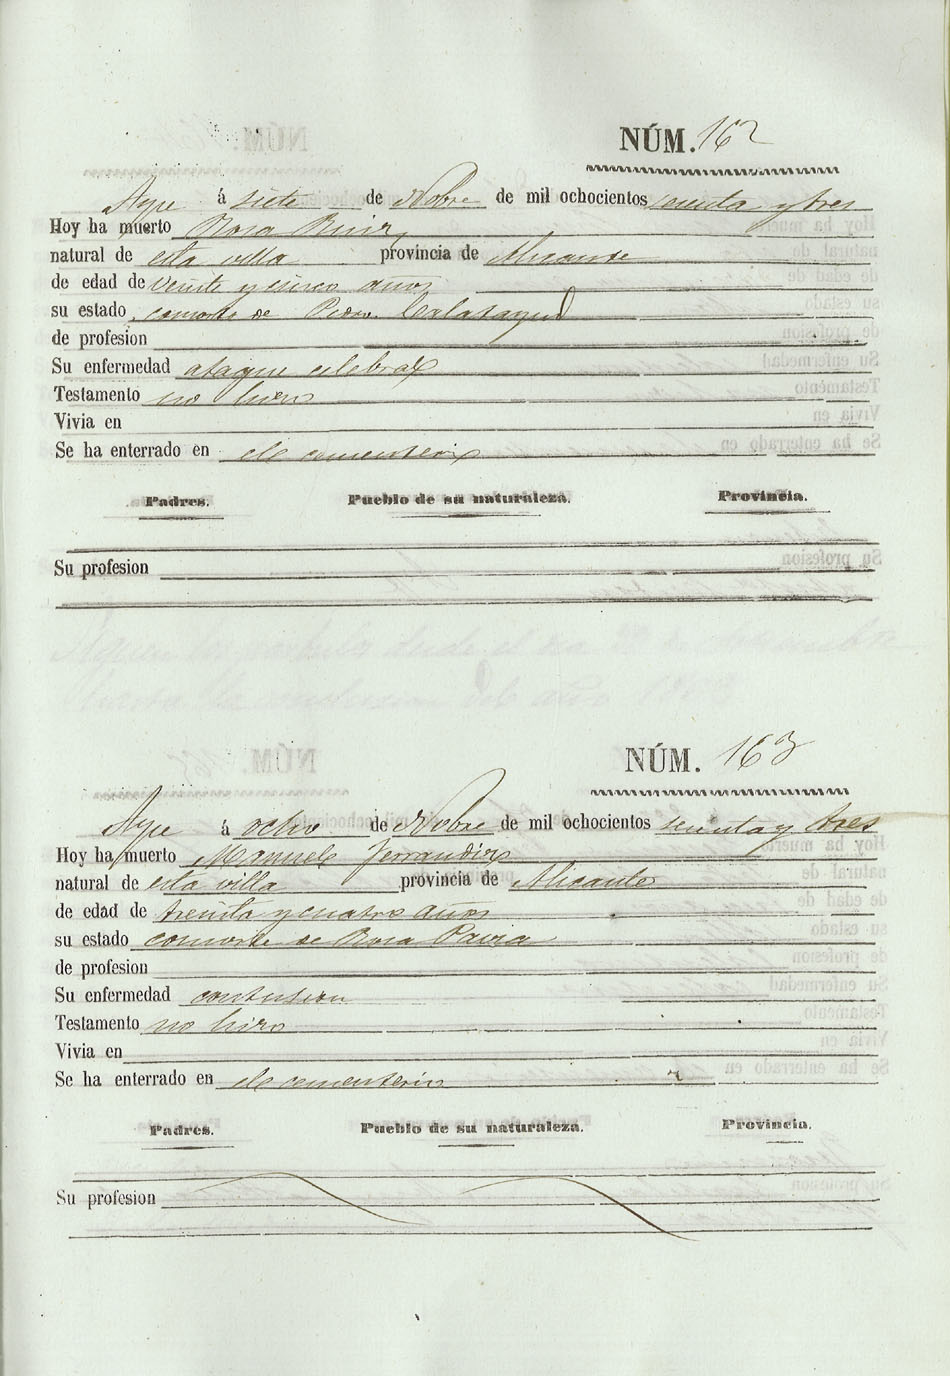 NÚM. 162
Aspe á siete de Nobre de mil ochocientos sesenta y tres
Hoy ha muerto Rosa Ruiz
natural de esta villa provincia de Alicante
de edad de veinte y cinco años
su estado consorte de Pedro Calatayud
de profesion
Su enfermedad ataque celebral
Testamento no hizo
Vivia en
Se ha enterrado en el cementerio
Padres. Pueblo de su naturaleza. Provincia.
Su profesion
NÚM. 163
Aspe á ocho de Nobre de mil ochocientos sesenta y tres
Hoy ha muerto Manuel Ferrandiz
natural de esta villa provincia de Alicante
de edad de treinta y cuatro años
su estado consorte de Rosa Pavia
de profesion
Su enfermedad contusion
Testamento no hizo
Vivia en
Se ha enterrado en el cementerio
Padres. Pueblo de su naturaleza. Provincia.
Su profesion